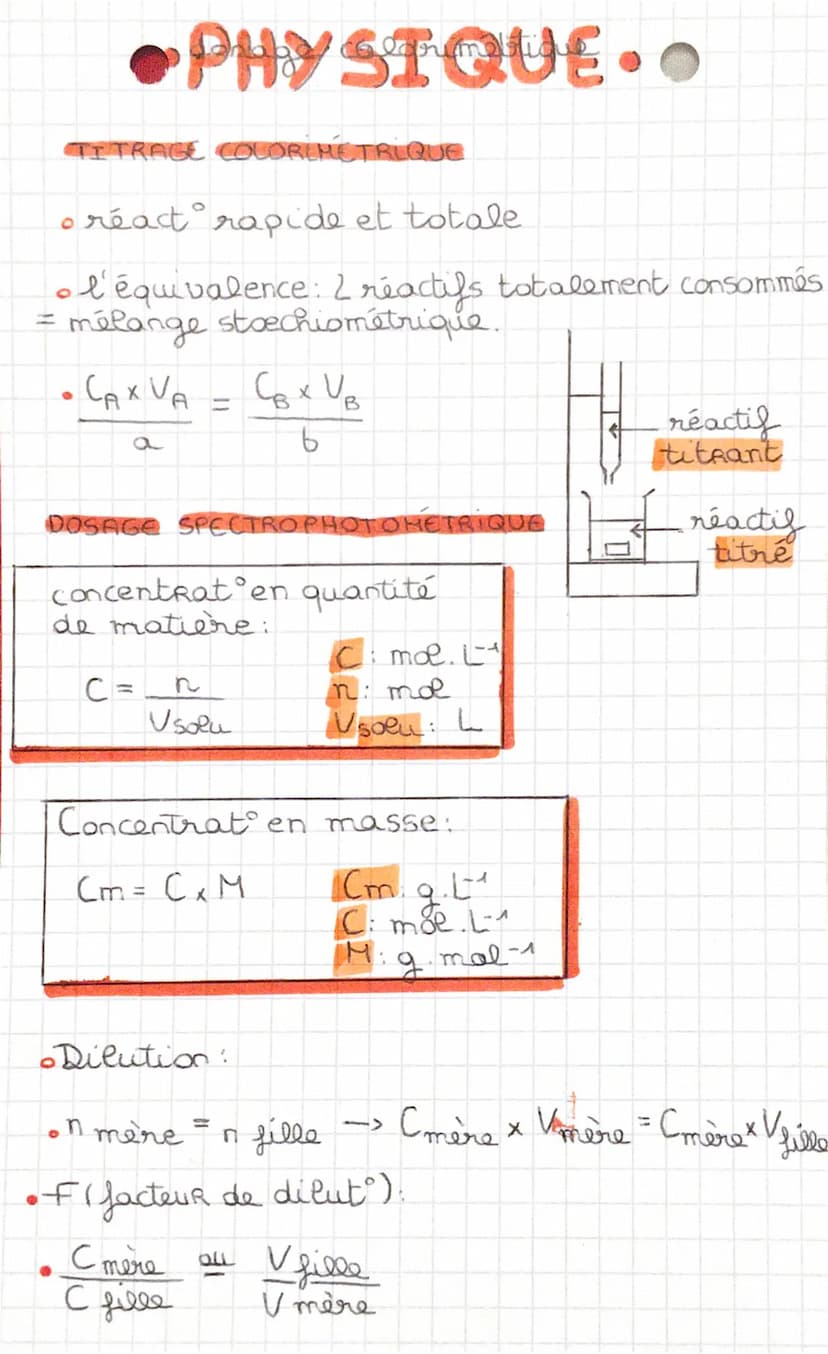 dosage colorimétrique
PHYSIQUE
TITRAGE COLORIMÉTRIQUE
réact° rapide et totale
l'équivalence : 2 réactifs totalement consommés
= mélange stœchiométrique.
CA x VA / a = CB x VB / b
réactif
titrant
réactif
titré
DOSAGE SPECTROPHOTOMÉTRIQUE
concentrat° en quantité
de matière :
C = n / Vsolu
C : mol.L⁻¹
n : mol
Vsolu : L
Concentrat° en masse :
Cm = C x M
Cm : g.L⁻¹
C : mol.L⁻¹
M : g.mol⁻¹
Dilution :
n mère = n fille → Cmère x Vmère = Cmère x Vfille
F (facteur de dilut°) :
C mère / C fille ou V fille / V mère